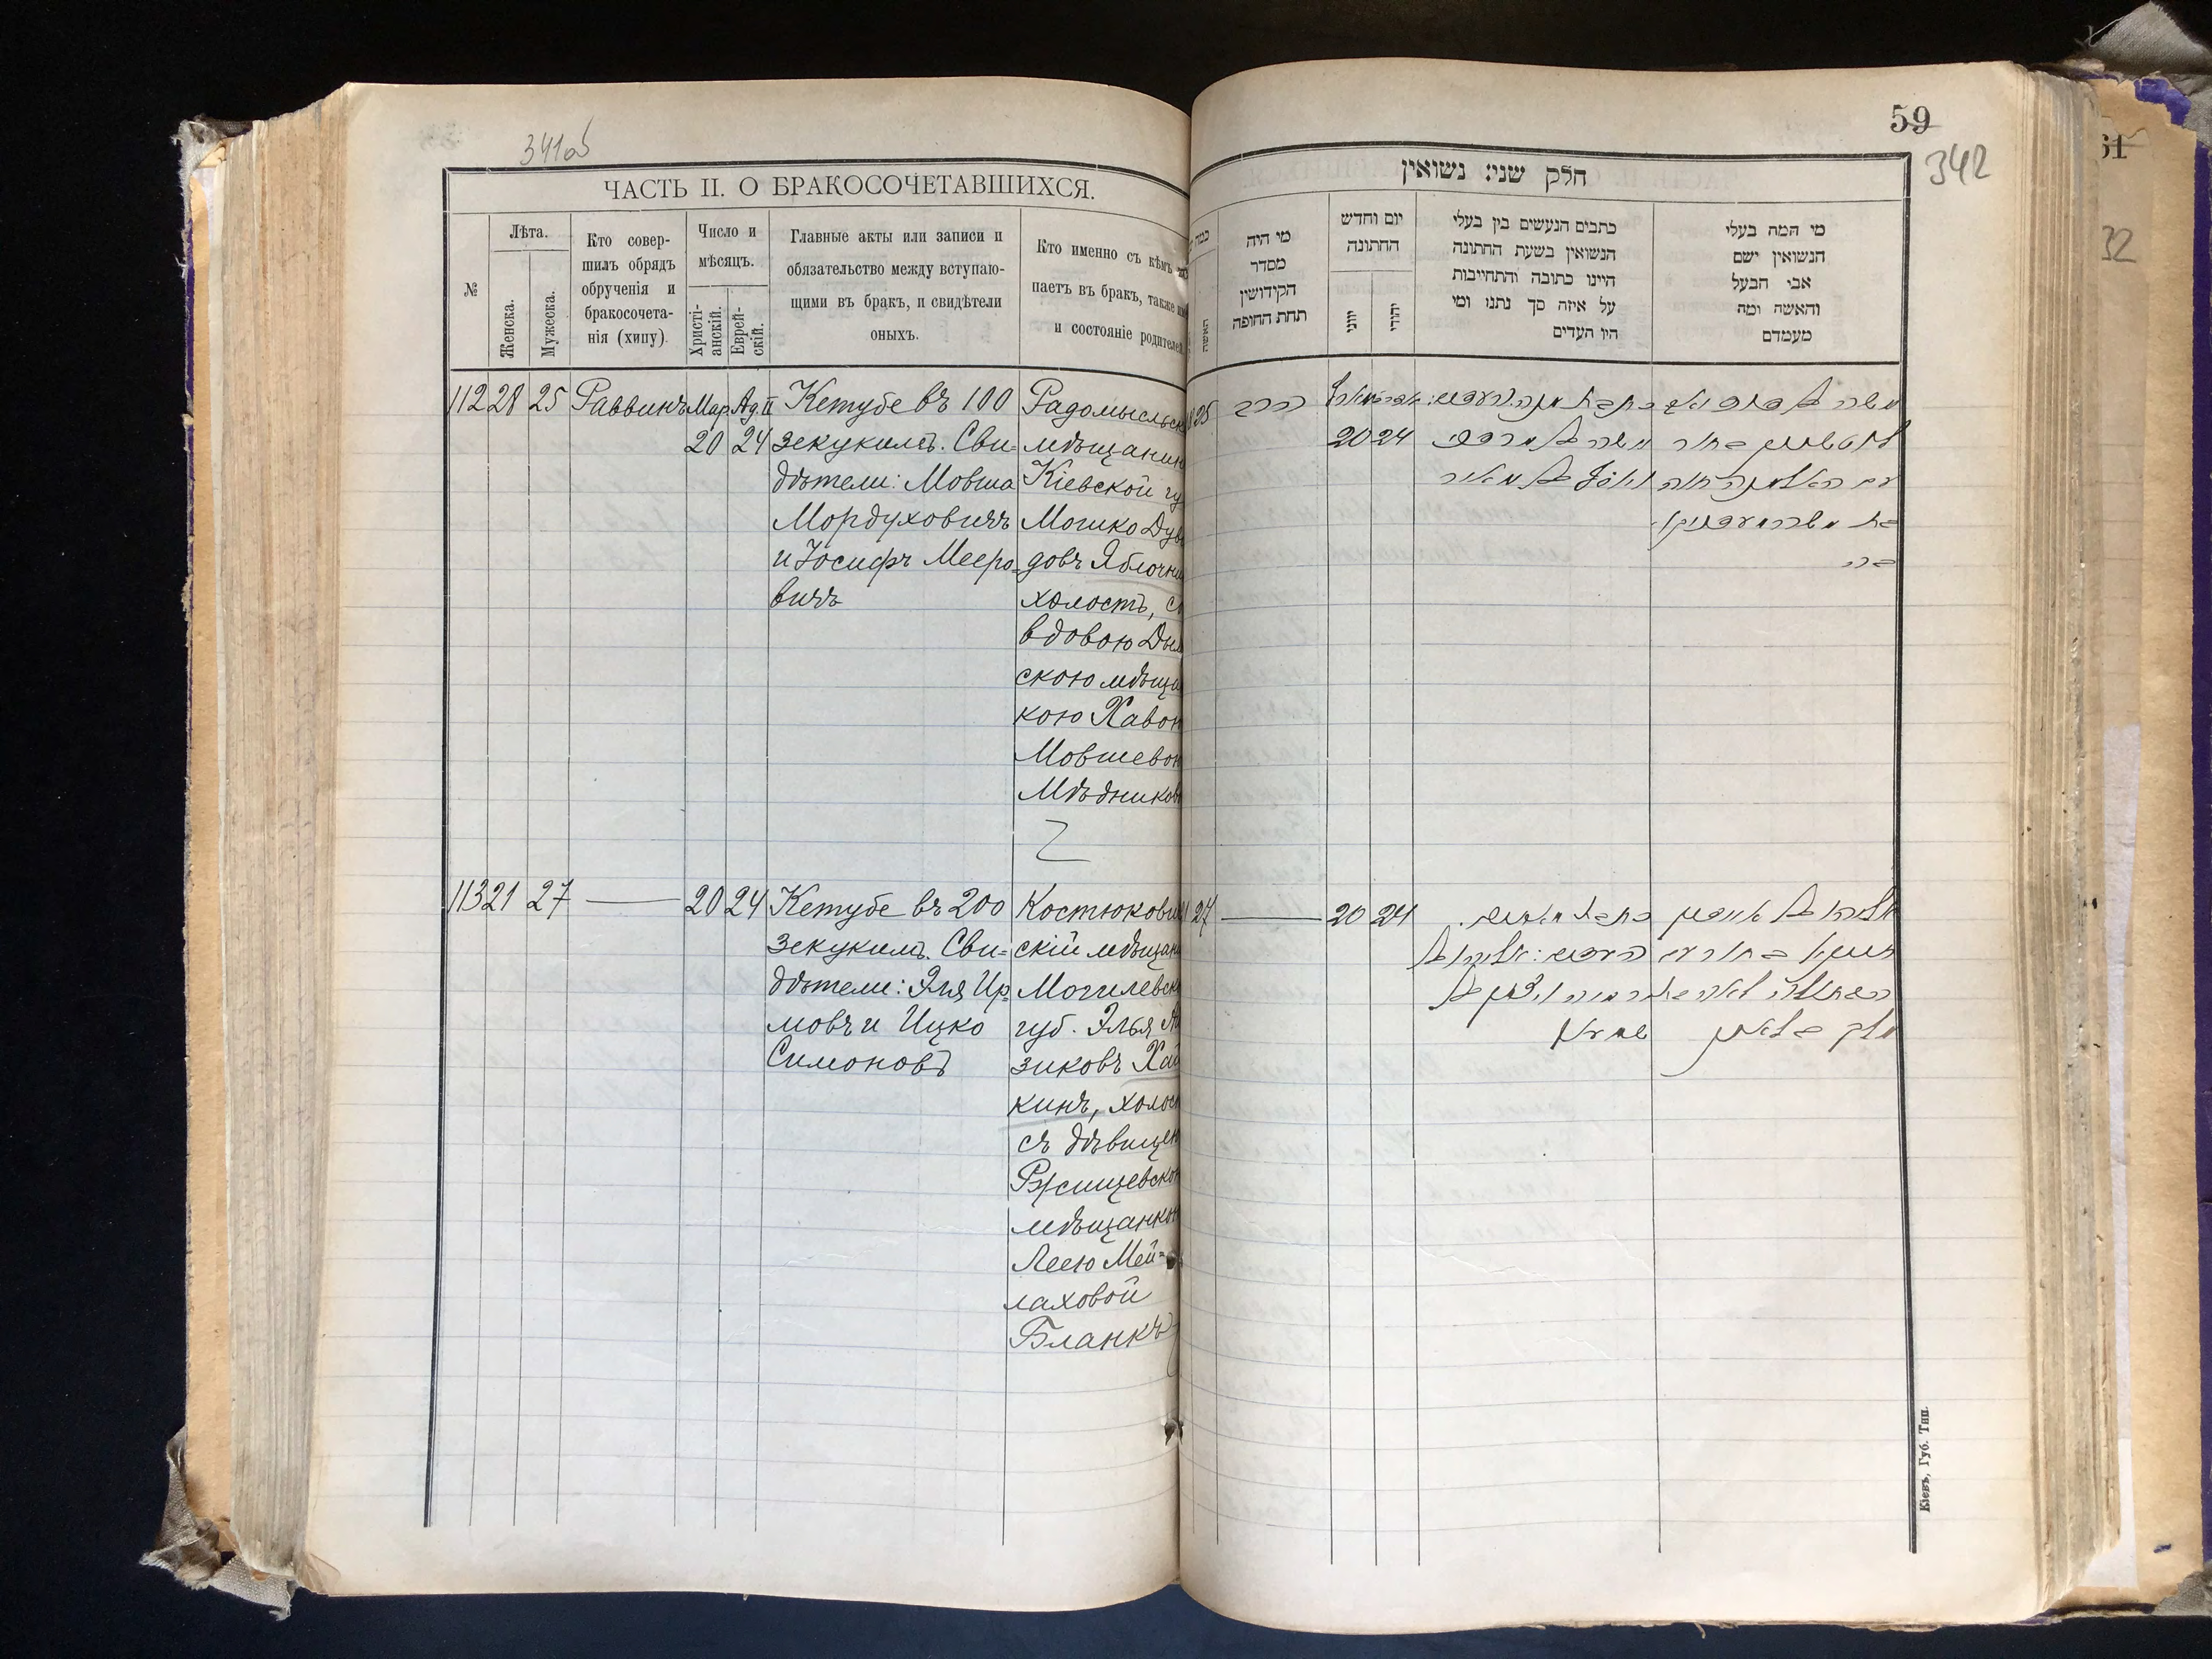 341об
ЧАСТЬ II. О БРАКОСОЧЕТАВШИХСЯ.
№
Лѣта.
Женска.
Мужеска.
Кто совер-
шилъ обрядъ
обрученія и
бракосочета-
нія (хипу).
Число и
мѣсяцъ.
Христі-
анскій.
Еврей-
скій.
Главные акты или записи и
обязательство между вступаю-
щими въ бракъ, и свидѣтели
оныхъ.
Кто именно съ кѣмъ
паетъ въ бракъ, также
и состояніе родителе
112 28 25 Раввинъ Мар. Ад. II
20 24
Кетубе въ 100
зекукимъ. Сви-
дѣтели: Мовша
Мордуховичъ
и Іосифъ Мееро-
вичъ
Радомысльск
мѣщанин
Кіевской гу
Мошко Дув
довъ Яблочни
холостъ, со
вдовою Дым
скою мѣща
кою Хавою
Мовшевою
Мѣдников
113 21 27 — 20 24
Кетубе въ 200
зекукимъ. Сви-
дѣтели: Эля Ир-
мовъ и Ицко
Симоновъ
Костюкови
скій мѣщан
Могилевск
губ. Элья Ай
зиковъ Хай
кинъ, холос
съ дѣвицею
Ржищевскою
мѣщанкою
Леею Мей-
лаховой
Бланкъ
59
342
חלק שני: נשואין
האשה
מי היה
מסדר
הקידושין
תחת החופה
יום וחדש
החתונה
יווני
יהודי
כתבים הנעשים בין בעלי
הנשואין בשעת החתונה
היינו כתובה והתחייבות
על איזה סך נתנו ומי
היו העדים
מי המה בעלי
הנשואין ושם
אבי הבעל
והאשה ומה
מעמדם
25 הרב
20 24
משה ב
משה ב מרדכי
ויוסף ב מאיר
27 — 20 24
אליהו ב אייזיק
חייקין בחור עם
הבתולה לאה בת
מלך בלאנק
העדים: אליהו ב
ירמיה ויצחק ב
שמעון
Кіевъ, Губ. Тип.
61
32